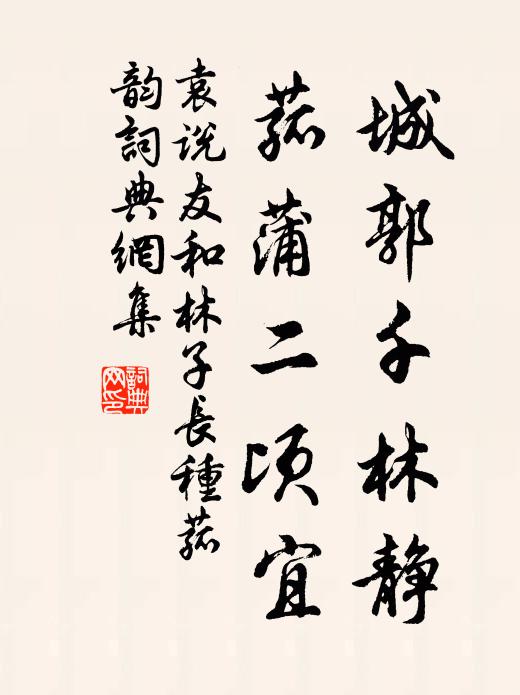 城郭千林静
菰蒲二顷宜
袁说友和林子長種菰
韵詞典網集
詞典网印